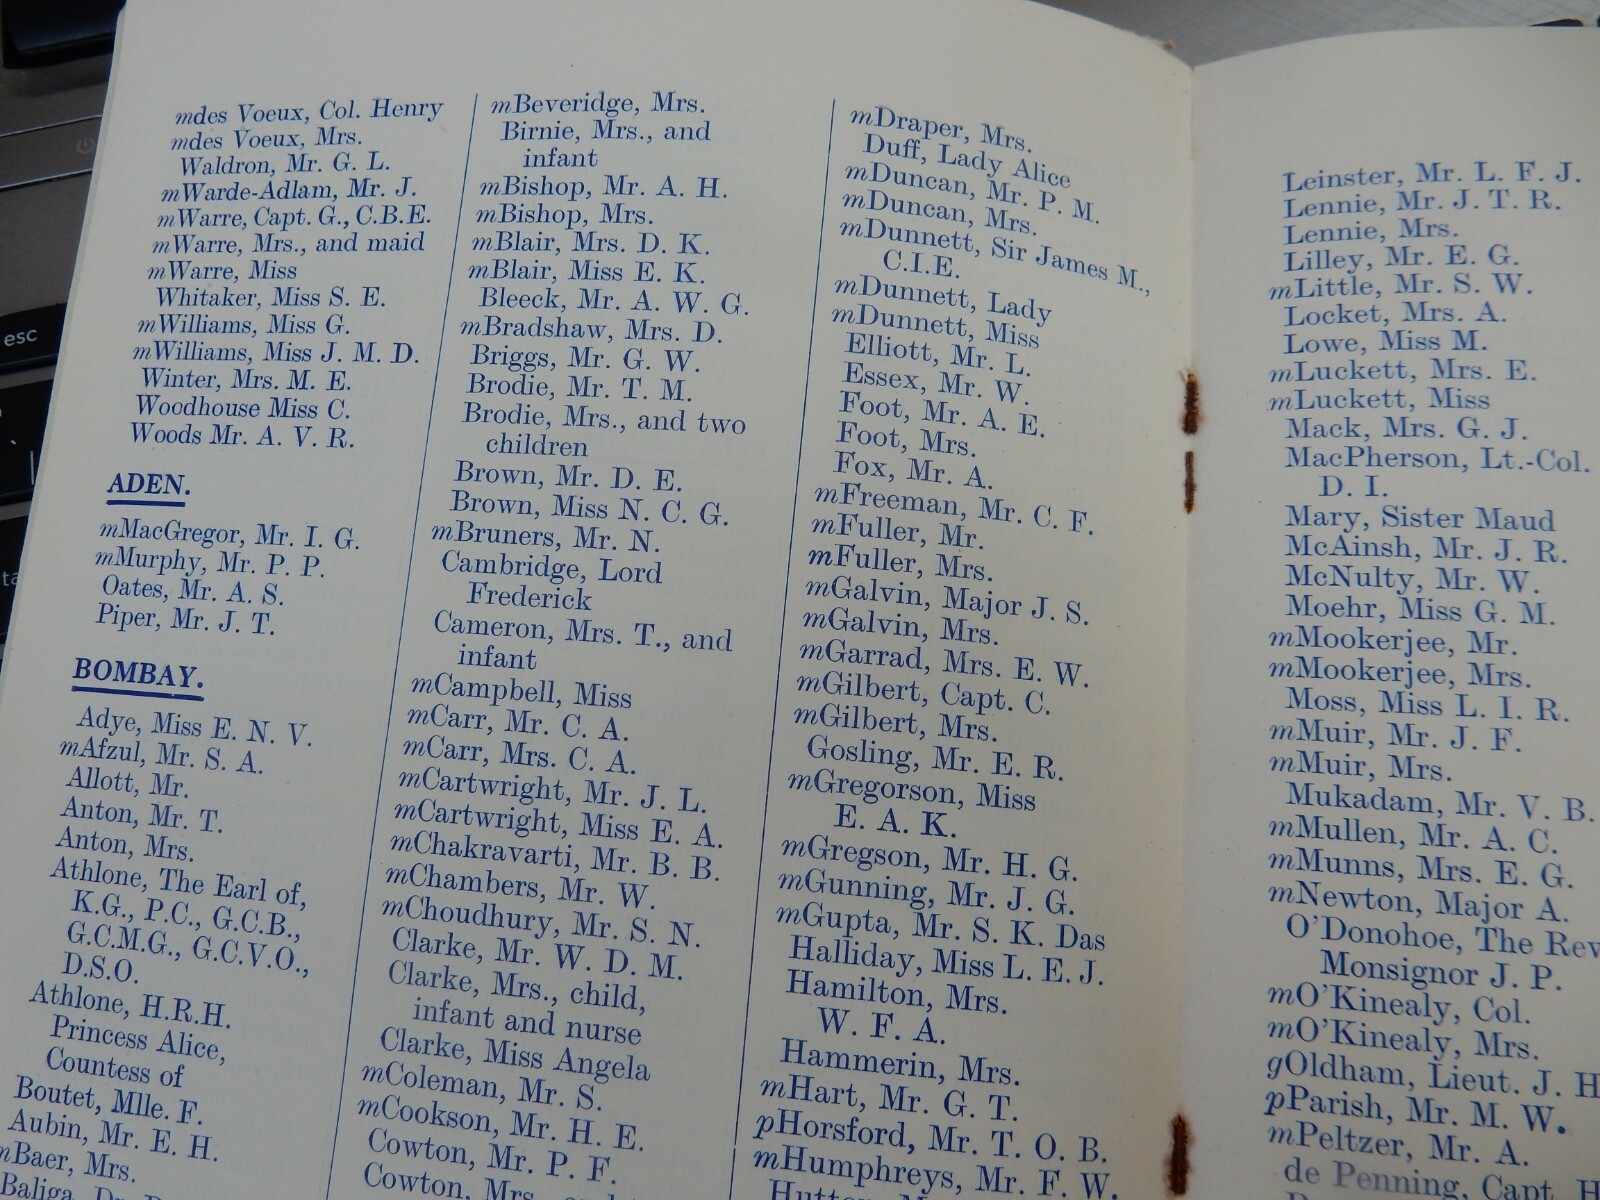 mdes Voeux, Col. Henry
mdes Voeux, Mrs.
Waldron, Mr. G. L.
mWarde-Adlam, Mr. J.
mWarre, Capt. G., C.B.E.
mWarre, Mrs., and maid
mWarre, Miss
Whitaker, Miss S. E.
mWilliams, Miss G.
mWilliams, Miss J. M. D.
Winter, Mrs. M. E.
Woodhouse Miss C.
Woods Mr. A. V. R.
ADEN.
mMacGregor, Mr. I. G.
mMurphy, Mr. P. P.
Oates, Mr. A. S.
Piper, Mr. J. T.
BOMBAY.
Adye, Miss E. N. V.
mAfzul, Mr. S. A.
Allott, Mr.
Anton, Mr. T.
Anton, Mrs.
Athlone, The Earl of,
K.G., P.C., G.C.B.,
G.C.M.G., G.C.V.O.,
D.S.O.
Athlone, H.R.H.
Princess Alice,
Countess of
Boutet, Mlle. F.
Aubin, Mr. E. H.
mBaer, Mrs.
Baliga, Dr.
mBeveridge, Mrs.
Birnie, Mrs., and
infant
mBishop, Mr. A. H.
mBishop, Mrs.
mBlair, Mrs. D. K.
mBlair, Miss E. K.
Bleeck, Mr. A. W. G.
mBradshaw, Mrs. D.
Briggs, Mr. G. W.
Brodie, Mr. T. M.
Brodie, Mrs., and two
children
Brown, Mr. D. E.
Brown, Miss N. C. G.
mBruners, Mr. N.
Cambridge, Lord
Frederick
Cameron, Mrs. T., and
infant
mCampbell, Miss
mCarr, Mr. C. A.
mCarr, Mrs. C. A.
mCartwright, Mr. J. L.
mCartwright, Miss E. A.
mChakravarti, Mr. B. B.
mChambers, Mr. W.
mChoudhury, Mr. S. N.
Clarke, Mr. W. D. M.
Clarke, Mrs., child,
infant and nurse
Clarke, Miss Angela
mColeman, Mr. S.
mCookson, Mr. H. E.
Cowton, Mr. P. F.
Cowton, Mrs.
mDraper, Mrs.
Duff, Lady Alice
mDuncan, Mr. P. M.
mDuncan, Mrs.
mDunnett, Sir James M.,
C.I.E.
mDunnett, Lady
mDunnett, Miss
Elliott, Mr. L.
Essex, Mr. W.
Foot, Mr. A. E.
Foot, Mrs.
Fox, Mr. A.
mFreeman, Mr. C. F.
mFuller, Mr.
mFuller, Mrs.
mGalvin, Major J. S.
mGalvin, Mrs.
mGarrad, Mrs. E. W.
mGilbert, Capt. C.
mGilbert, Mrs.
Gosling, Mr. E. R.
mGregorson, Miss
E. A. K.
mGregson, Mr. H. G.
mGunning, Mr. J. G.
mGupta, Mr. S. K. Das
Halliday, Miss L. E. J.
Hamilton, Mrs.
W. F. A.
Hammerin, Mrs.
mHart, Mr. G. T.
pHorsford, Mr. T. O. B.
mHumphreys, Mr. F. W.
Leinster, Mr. L. F. J.
Lennie, Mr. J. T. R.
Lennie, Mrs.
Lilley, Mr. E. G.
mLittle, Mr. S. W.
Locket, Mrs. A.
Lowe, Miss M.
mLuckett, Mrs. E.
mLuckett, Miss
Mack, Mrs. G. J.
MacPherson, Lt.-Col.
D. I.
Mary, Sister Maud
McAinsh, Mr. J. R.
McNulty, Mr. W.
Moehr, Miss G. M.
mMookerjee, Mr.
mMookerjee, Mrs.
Moss, Miss L. I. R.
mMuir, Mr. J. F.
mMuir, Mrs.
Mukadam, Mr. V. B.
mMullen, Mr. A. C.
mMunns, Mrs. E. G.
mNewton, Major A.
O'Donohoe, The Rev
Monsignor J. P.
mO'Kinealy, Col.
mO'Kinealy, Mrs.
gOldham, Lieut. J. H
pParish, Mr. M. W.
mPeltzer, Mr. A.
de Penning, Capt. H
esc